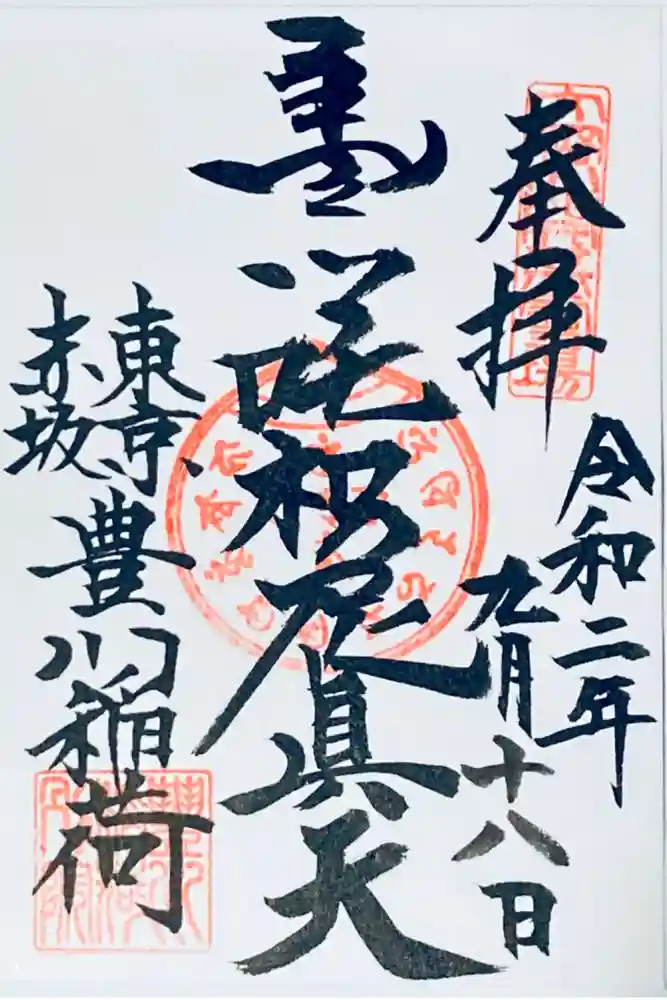 奉拝
令和二年
九月十八日
吒枳尼真天
東京
赤坂
豊川稲荷